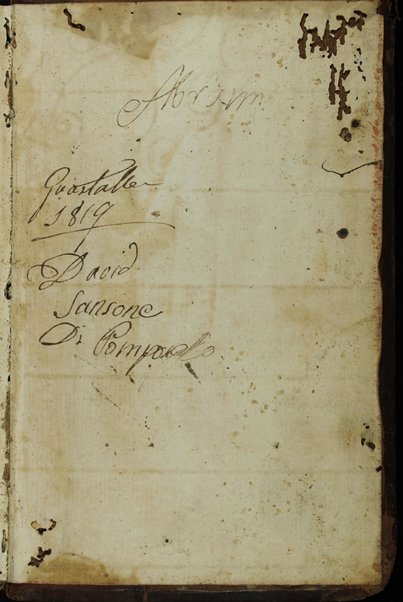 Abram
Guastalla
1819
David
Sansone
Di Pompeo